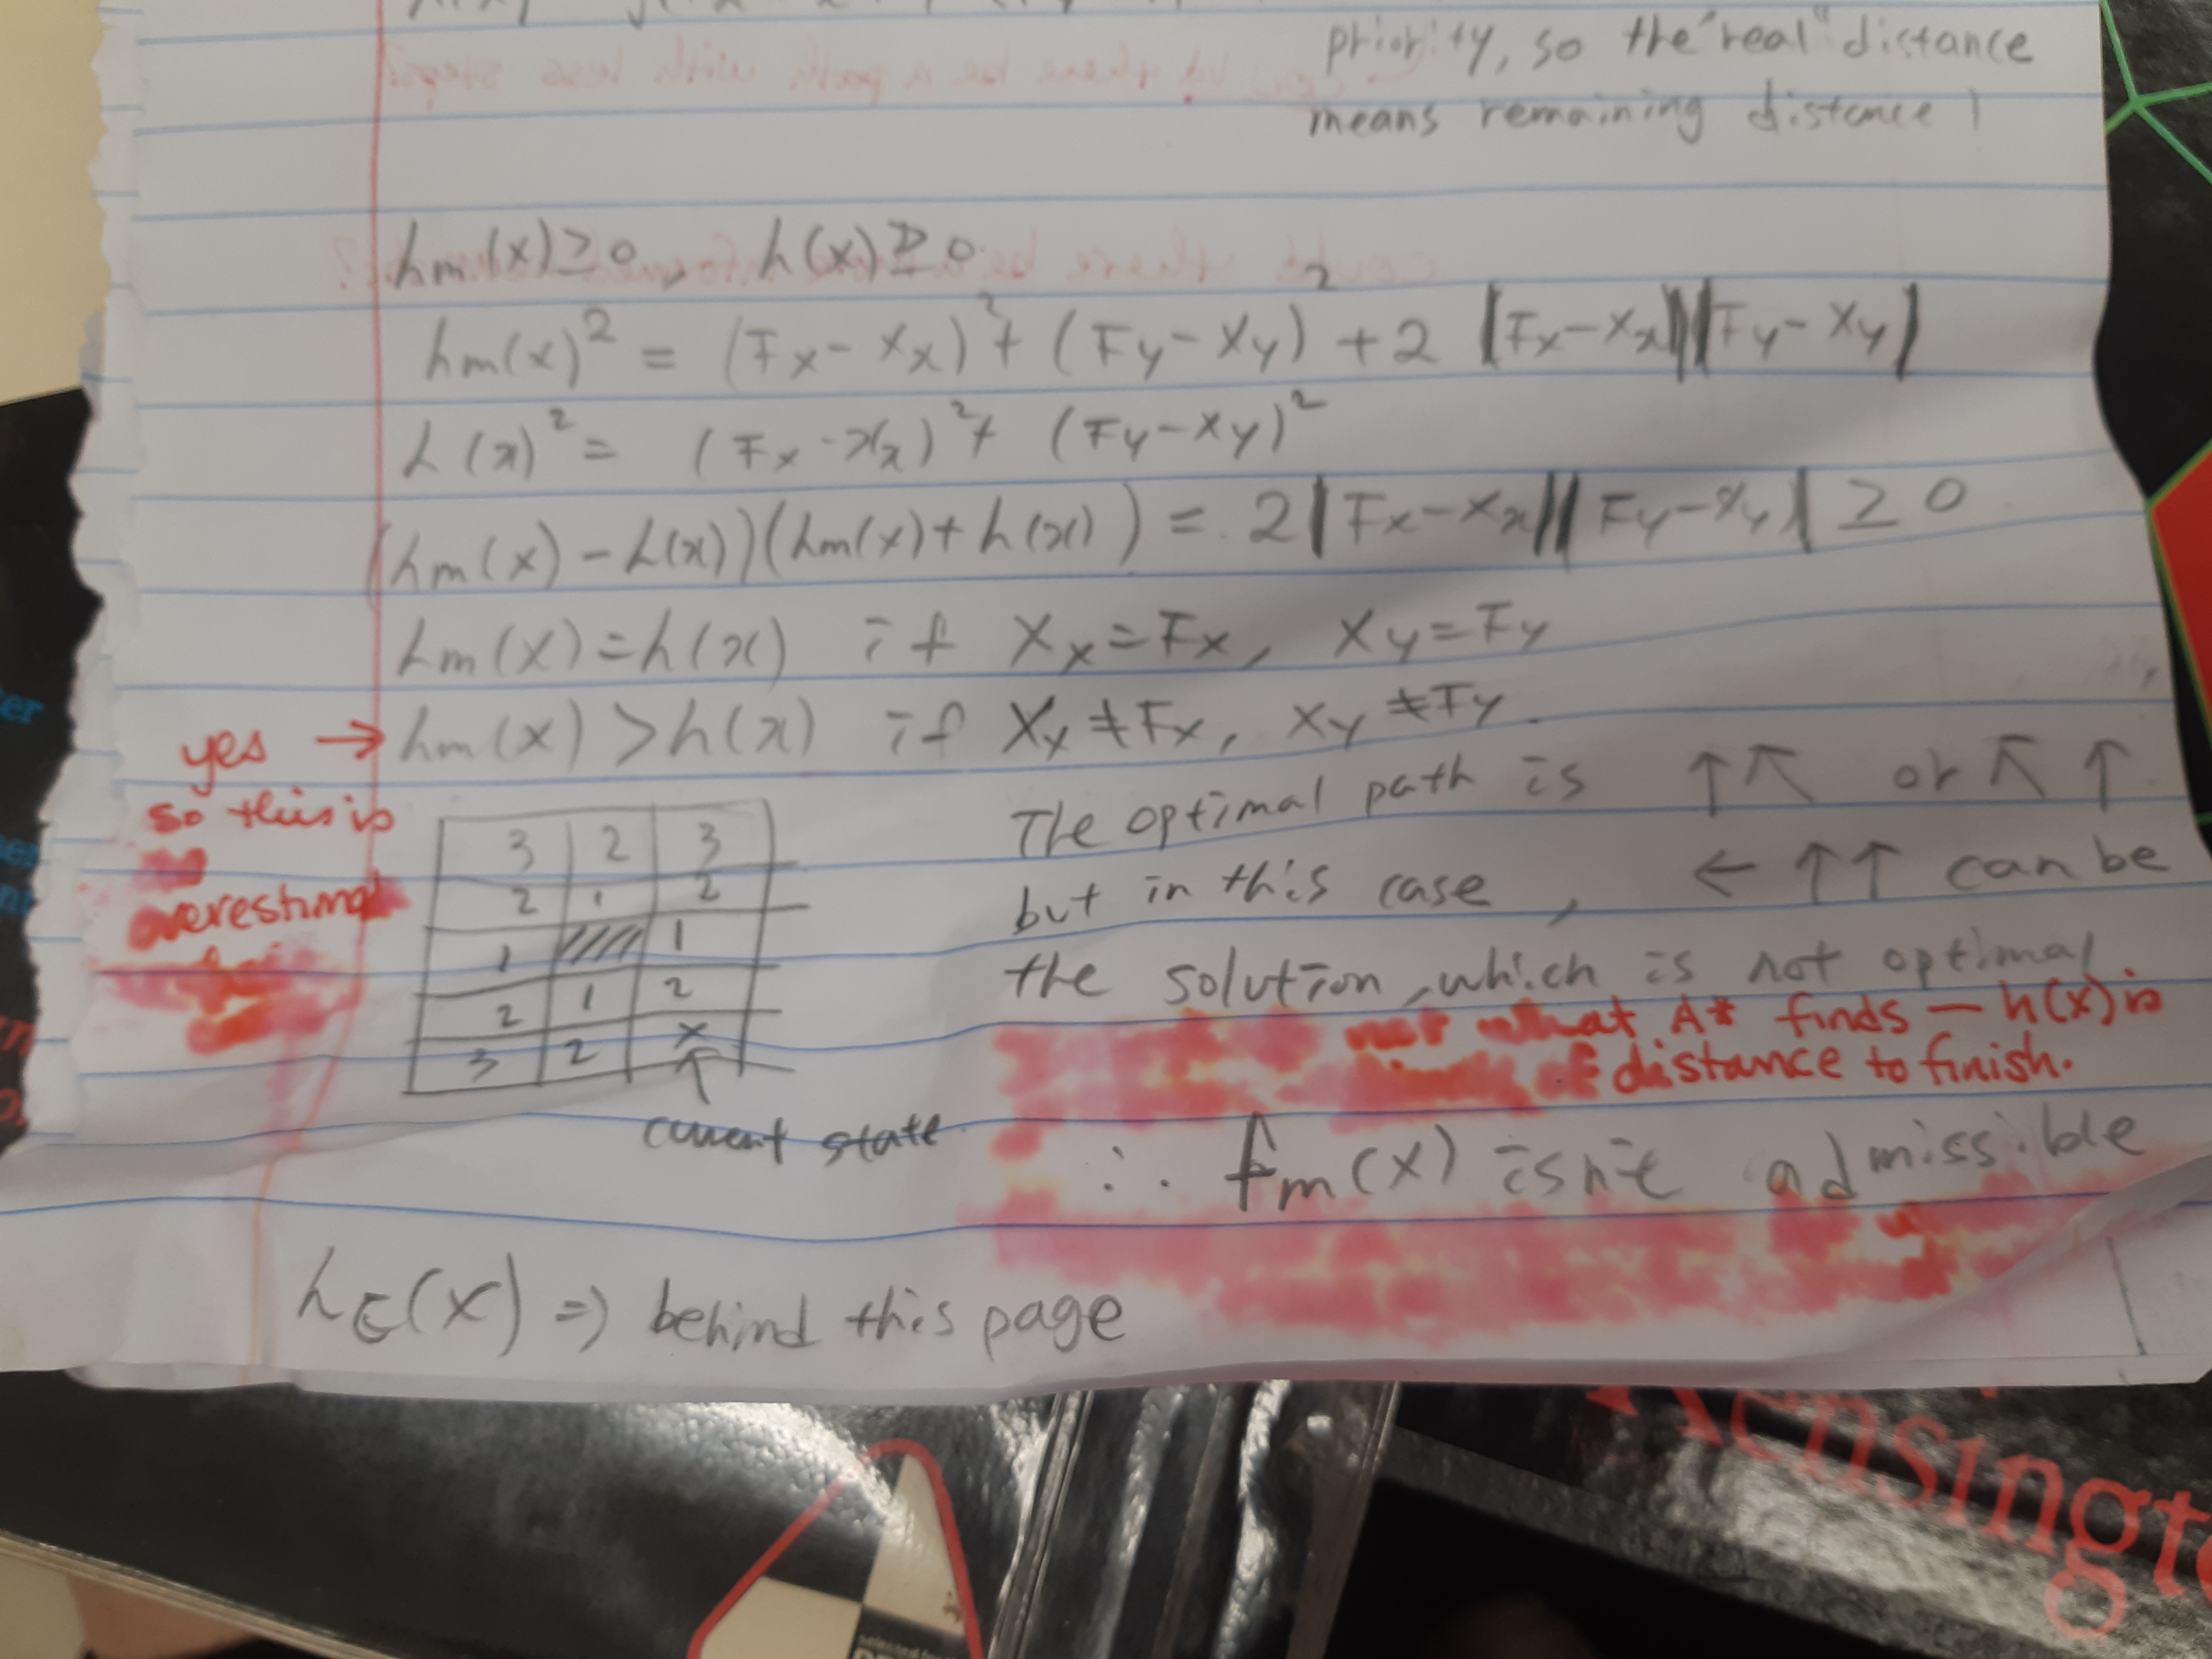 priority, so the "real" distance
means remaining distance)
hm(x)≥0 h(x)≥0
hm(x)² = (Fx - Xx)² + (Fy - Xy) + 2 |Fx - Xx||Fy - Xy|
h(x)² = (Fx - Xx)² + (Fy - Xy)²
(hm(x) - h(x))(hm(x) + h(x)) = 2|Fx - Xx||Fy - Xy| ≥ 0
hm(x) = h(x) if Xx = Fx, Xy = Fy
yes → hm(x) > h(x) if Xx ≠ Fx, Xy ≠ Fy.
so this is
overestima
3 2 3
2 1 2
1 1
2 1 2
3 2 X
↑
current state
The optimal path is ↑↖ or ↖↑.
but in this case, ← ↑↑ can be
the solution, which is not optimal
what A* finds — h(x) is
distance to finish.
∴ fm(x) isn't admissible
hc(x) => behind this page
Kensingt